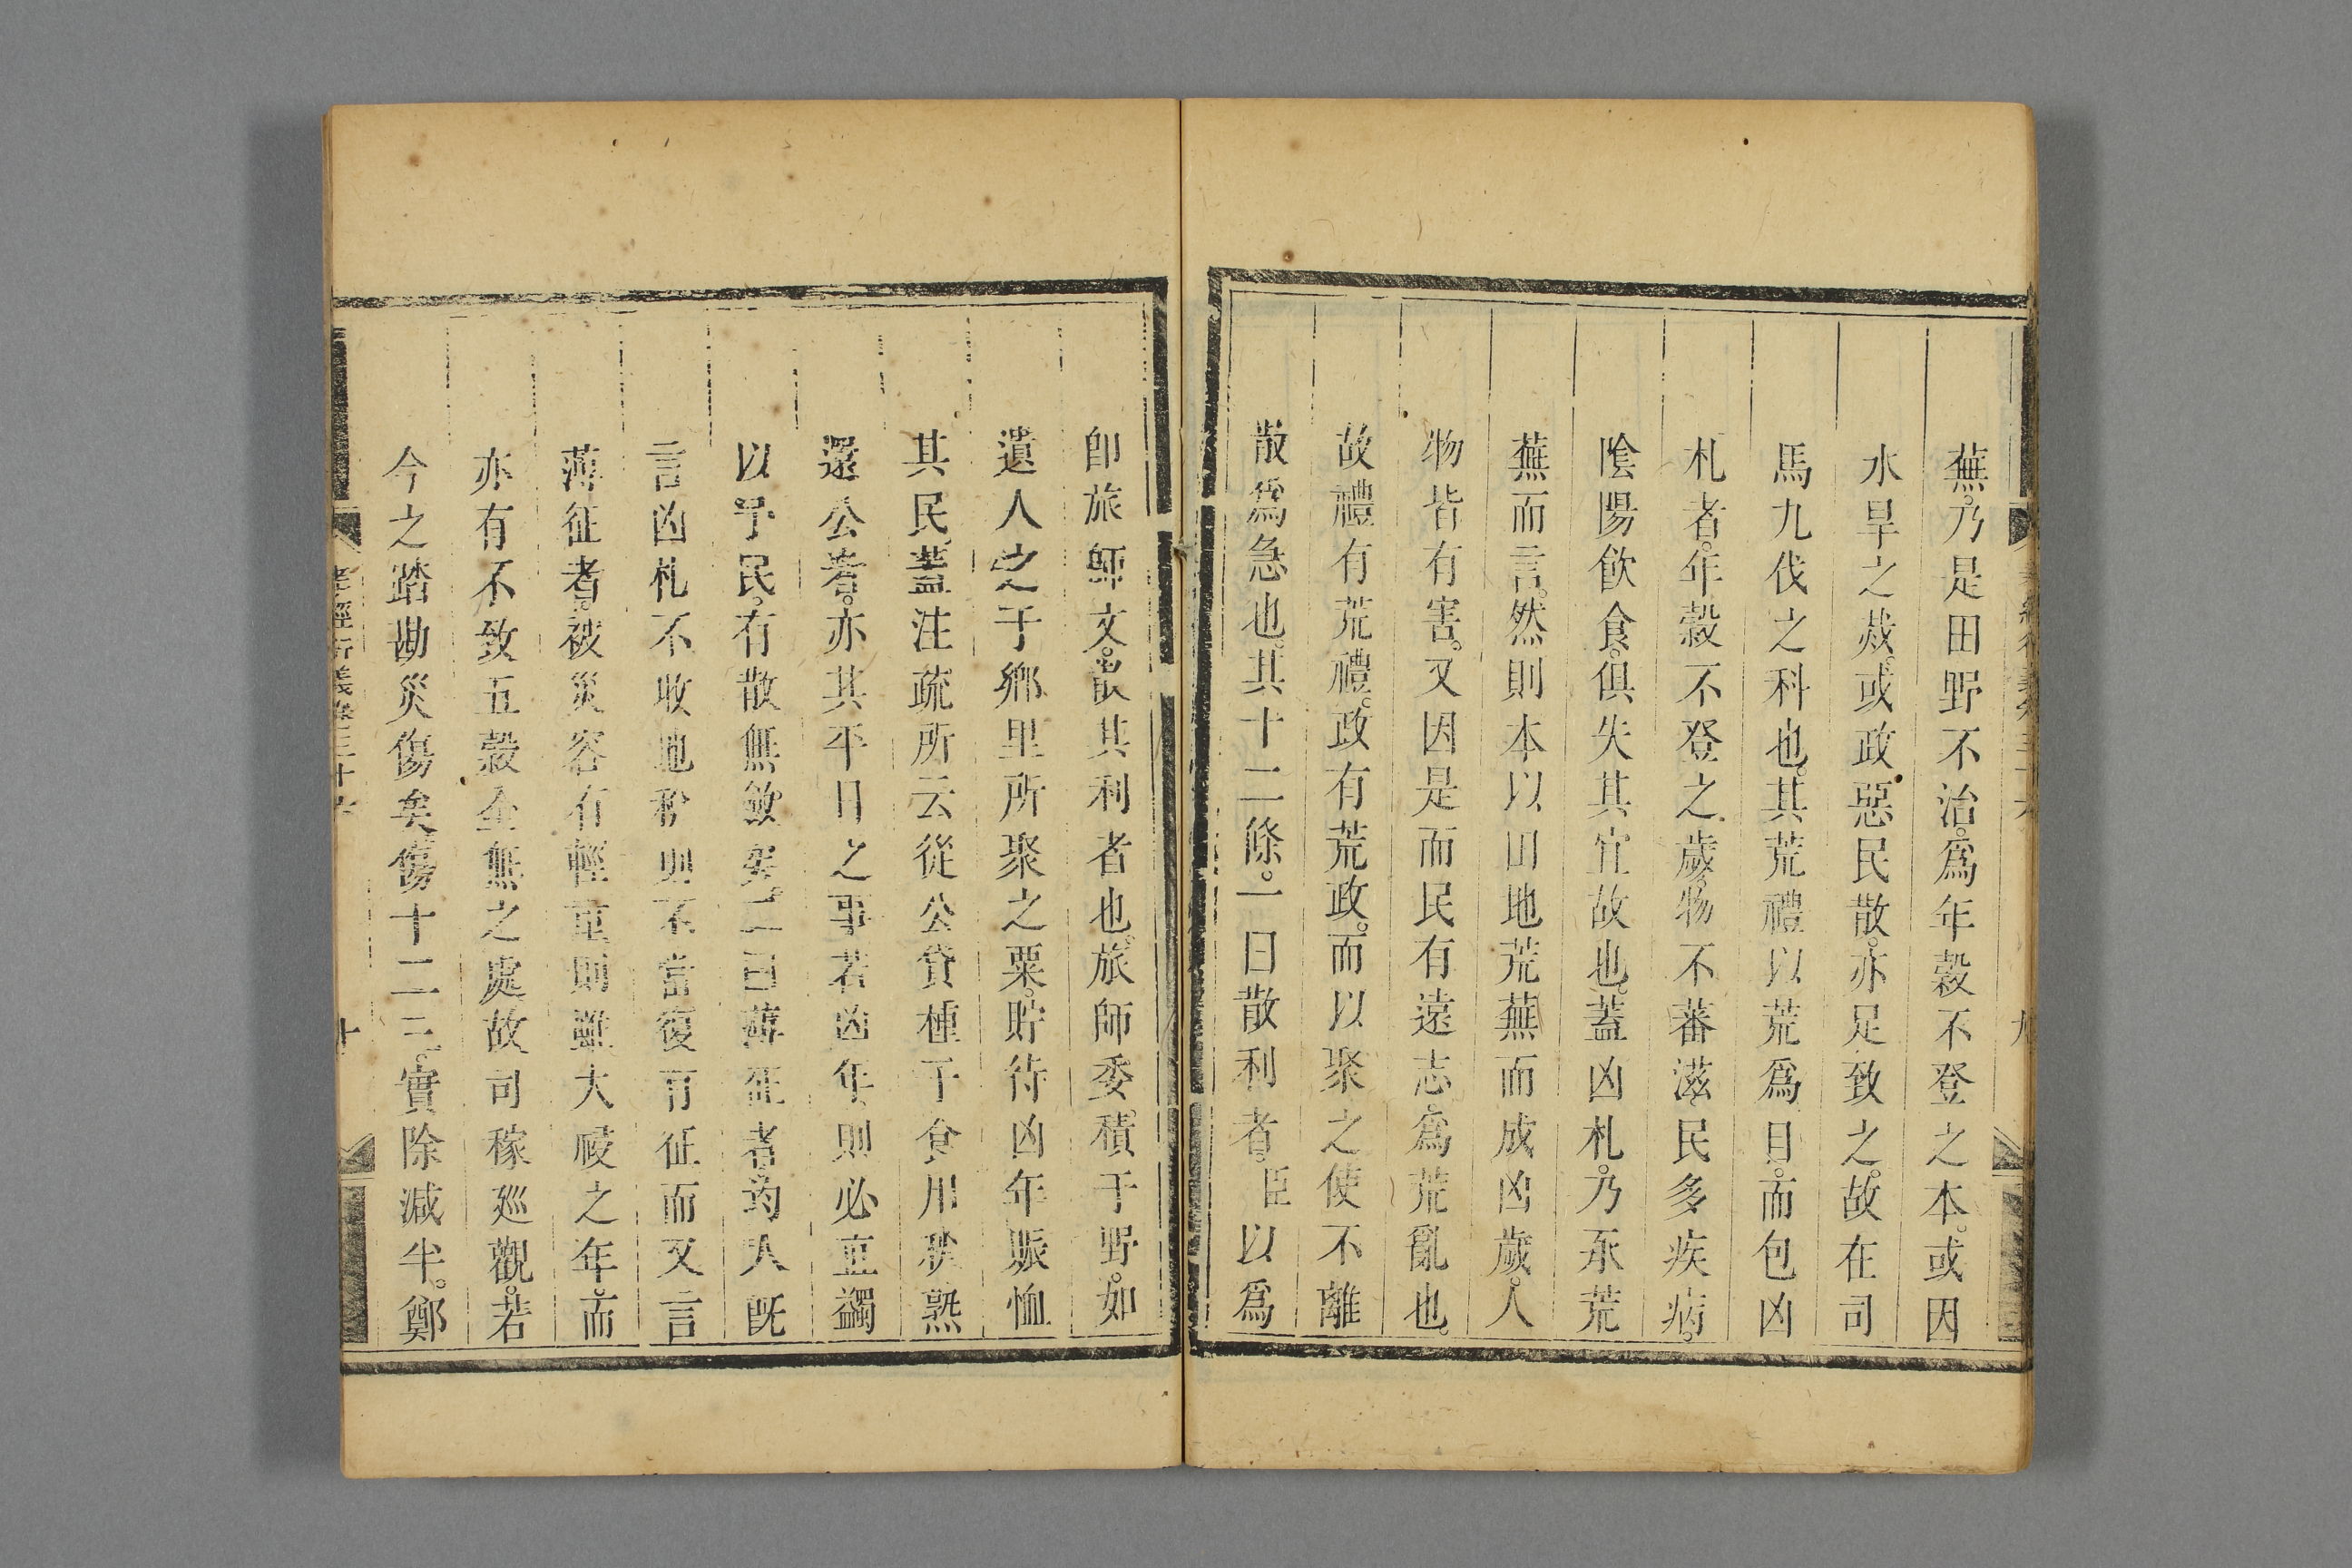 蕪。乃是田野不治。爲年穀不登之本。或因
水旱之烖。或政惡民散。亦足致之。故在司
馬九伐之科也。其荒禮以荒爲日。而包凶
札者。年穀不登之歲。物不蕃滋。民多疾病。
陰陽飲食。俱失其宜故也。蓋凶札。乃承荒
蕪而言。然則本以田地荒蕪而成凶歲。人
物皆有害。又因是而民有遠志。爲荒亂也。
故禮有荒禮。政有荒政。而以聚之使不離
散爲急也。其十二條。一曰散利者。臣以爲
卽旅師文。散其利者也。旅師委。積于野。如
遺人之于鄉里所聚之粟。貯待凶年賑恤
其民。蓋注疏所云從公貸種子食用秋熟
還公者。亦其平日之事若凶年則必直蠲
以予民。有散無斂矣。二曰薄征者。均人旣
言凶札不收地稅則不當復有征而又言
薄征者。被災容有輕重則雖大祲之年。而
亦有不致五穀全無之處故司稼巡觀。若
今之踏勘災傷矣。傷十二三。實除減半。鄭
孝經衍義卷三十六
十